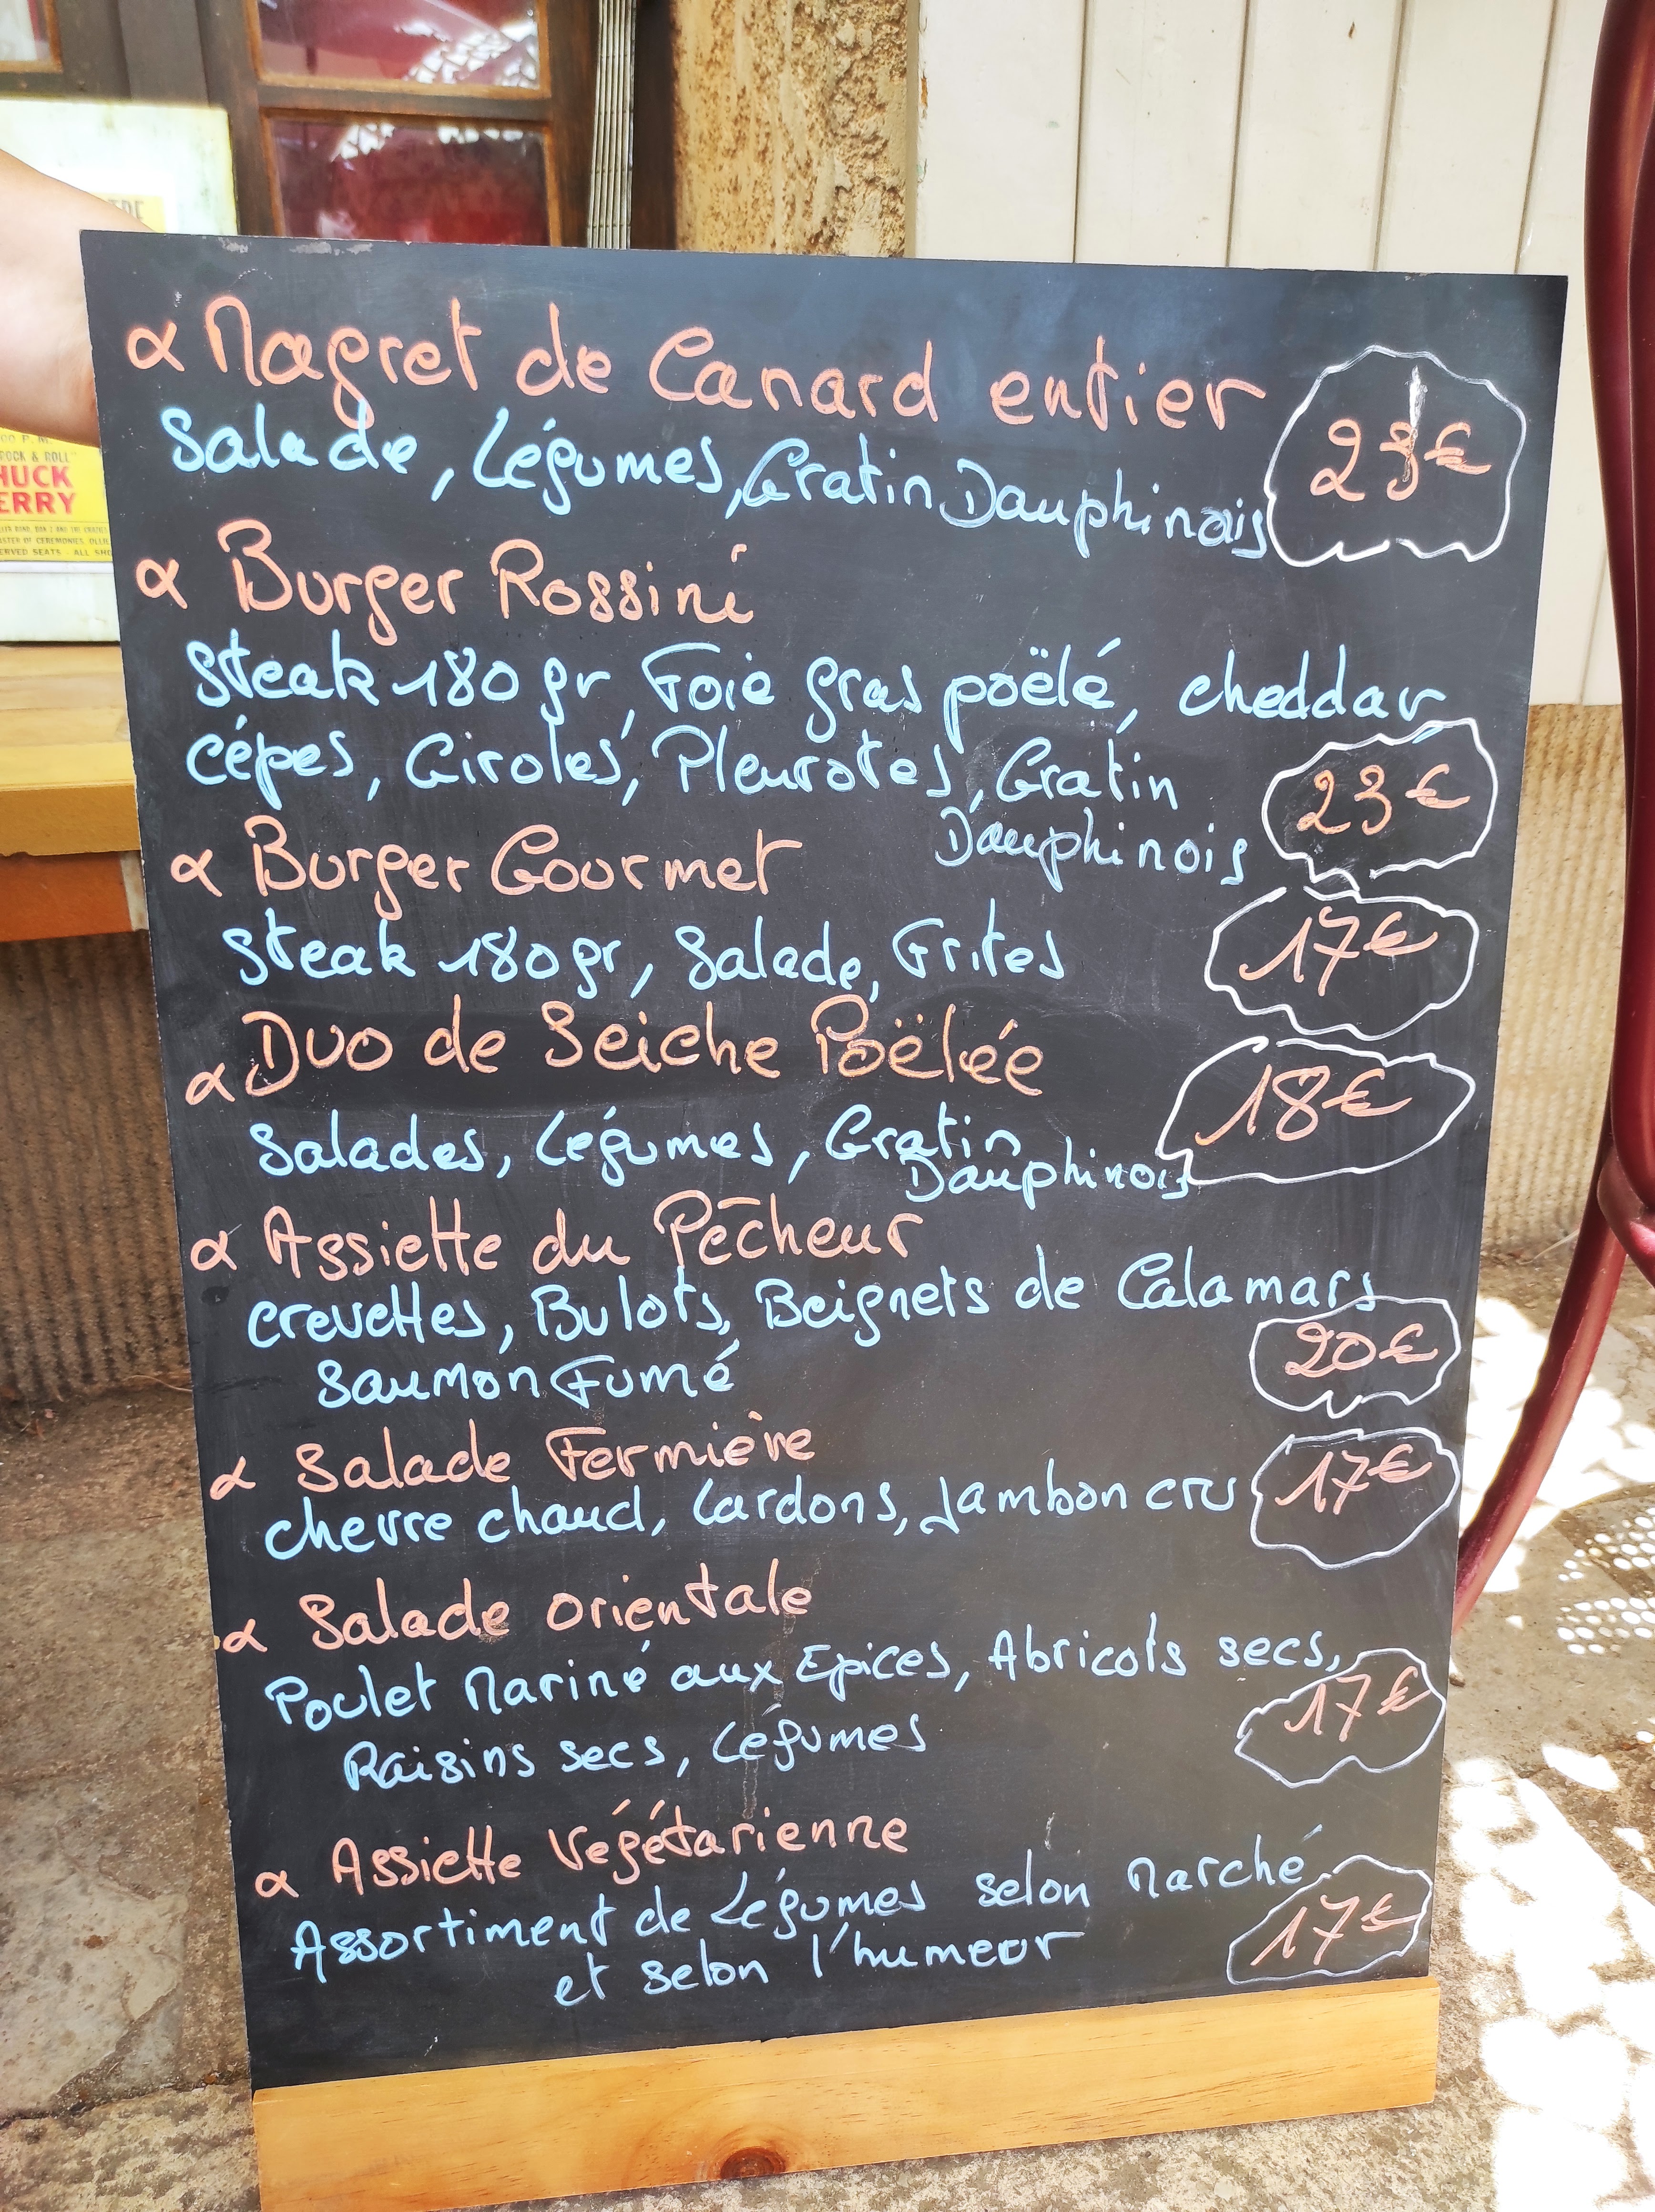 TRE
00 P. M.
ROCK & ROLL"
HUCK
ERRY
ERVED SEATS - ALL SHO
∝ Magret de Canard entier
23€
Salade, Légumes, Gratin Dauphinois
∝ Burger Rossini
Steak 180 gr, Foie gras poëlé, cheddar
cépes, Giroles, Pleurotes, Gratin
Dauphinois
23€
∝ Burger Gourmet
Steak 180gr, Salade, Frites
17€
∝ Duo de Seiche Poëlée
18€
Salades, Légumes, Gratin
Dauphinois
∝ Assiette du Pêcheur
crevettes, Bulots, Beignets de Calamars
Saumon Fumé
20€
∝ Salade Fermière
chevre chaud, Lardons, Jambon cru
17€
∝ Salade orientale
Poulet Mariné aux Epices, Abricots secs,
Raisins secs, Légumes
17€
∝ Assiette Végétarienne
Assortiment de Légumes selon Marché
et selon l'humeur
17€